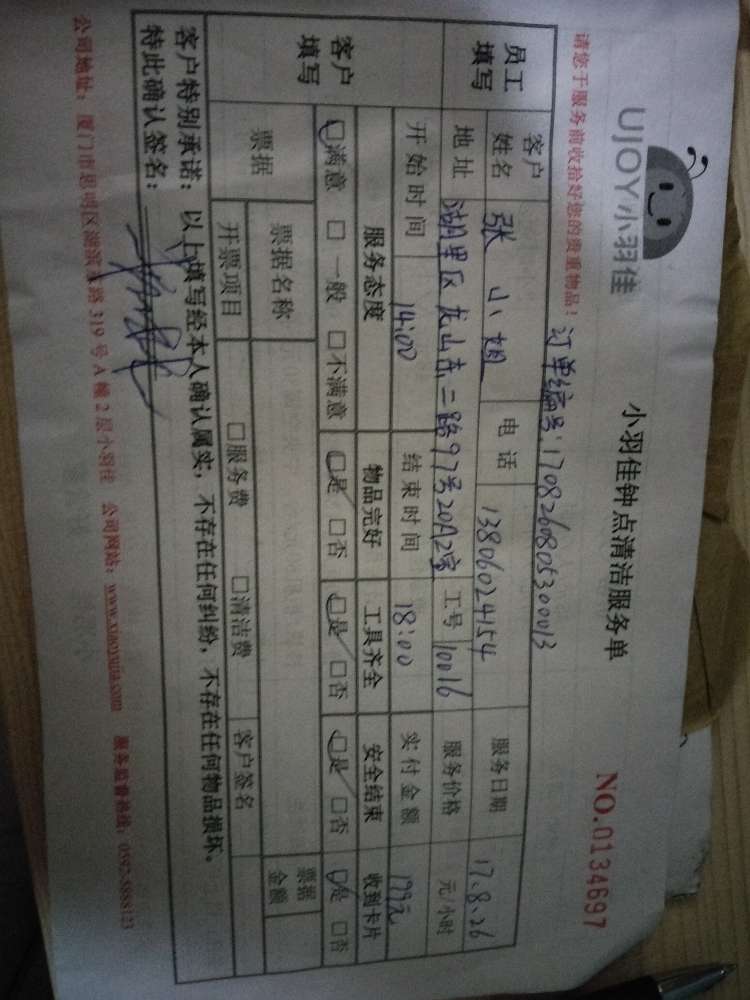 UJOY小羽佳
小羽佳钟点清洁服务单
NO.0134697
请您于服务前收拾好您的贵重物品!
订单编号:1708260805300013
员工填写
客户姓名 张小姐 电话 13806024154 服务日期 17.8.26
地址 湖里区龙山东二路97号20A2室 工号 10016 服务价格 元/小时
开始时间 14:00 结束时间 18:00 实付金额 199元
客户填写
服务态度 物品完好 工具齐全 安全结束 收到卡片
□满意 □一般 □不满意 □是 □否 □是 □否 □是 □否 □是 □否
票据 票据名称 票据金额
开票项目 □服务费 □清洁费 客户签名
客户特别承诺:以上填写经本人确认属实,不存在任何纠纷,不存在任何物品损坏。
特此确认签名:
公司地址:厦门市思明区湖滨东路319号A幢2层小羽佳 公司网站:www.xiaoyujia.com 服务监督热线:0592-5888123